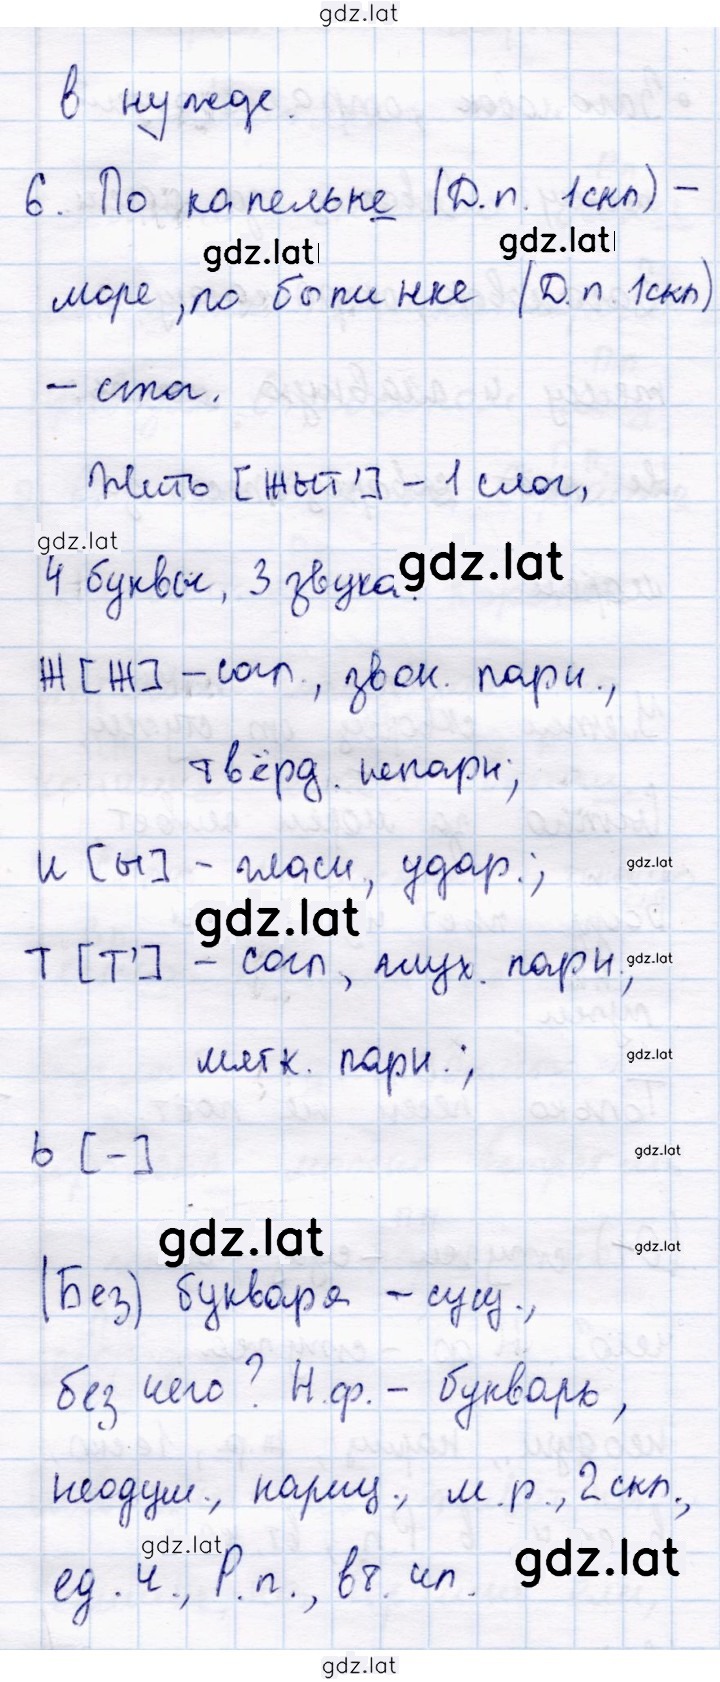 gdz.lat
в нужде.
6. По капельке (Д.п. 1скл) –
gdz.lat
gdz.lat
море, по былинке (Д.п. 1скл)
– стог.
Жить [жыт'] – 1 слог,
gdz.lat
gdz.lat
4 буквы, 3 звука.
Ж [ж] – согл., звон. парн.,
твёрд. непарн;
и [ы] – гласн, удар.;
gdz.lat
gdz.lat
т [т'] – согл, глух. парн.,
gdz.lat
мягк. парн.;
gdz.lat
ь [-]
gdz.lat
gdz.lat
gdz.lat
(Без) букваря – сущ.,
без чего? Н.ф. – букварь,
неодуш., нариц., м.р., 2 скл.,
gdz.lat
gdz.lat
ед. ч., Р.п., вт. чл.
gdz.lat